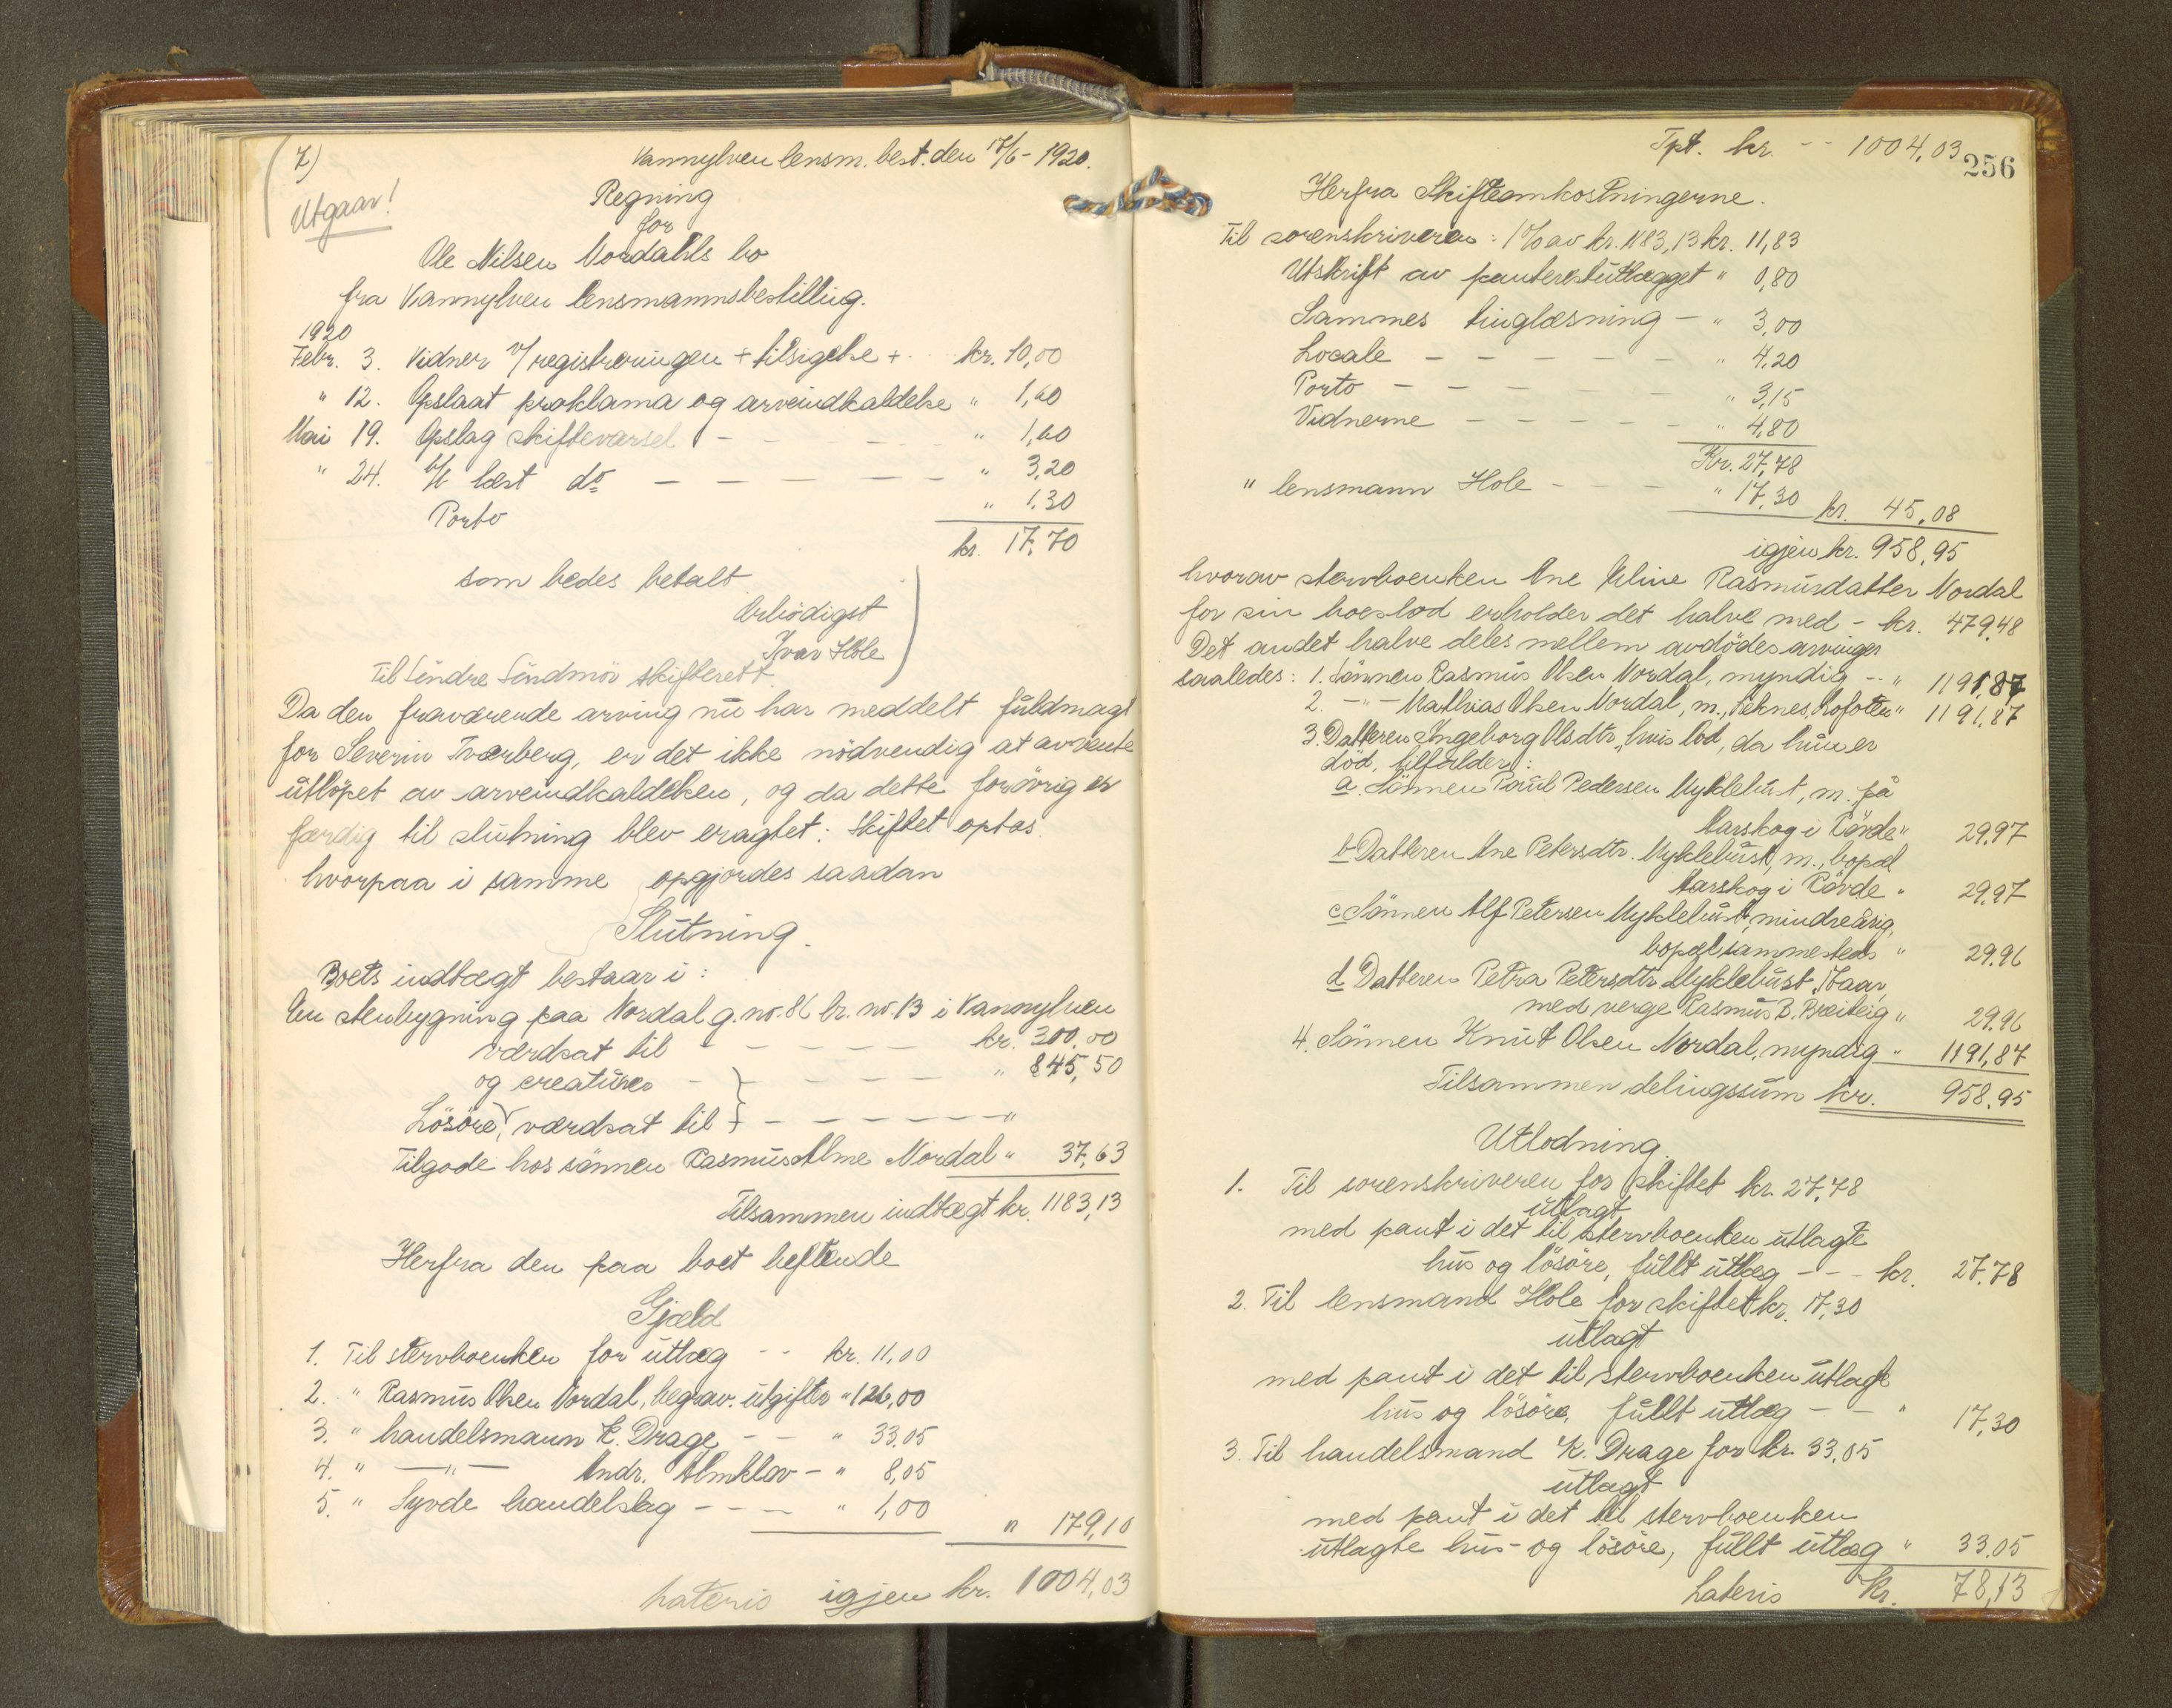 7)
Vannylven lensm. best. den 17/6 - 1920.
Utgaar!
Regning
for
Ole Nilsen Nordahls bo
fra Vannylven lensmannsbestilling.
1920
Febr. 3. Vidner v/ registreringen + tilsigelse + kr. 10,00
" 12. Opslaat proklama og arveindkaldelse " 1,60
Mai 19. Opslag skiftevarsel - - - - " 1,60
" 24. læst do - - - - - " 3,20
Porto " 1.30
kr. 17.70
som bedes betalt
Ærbödigst
Ivar Hole
Til Söndre Söndmör skifterett.
Da den fraværende arving nu har meddelt fuldmagt
for Severin Tværberg, er det ikke nödvendig at avvente
utlöpet av arveindkaldelsen, og da dette forövrig er
færdig til slutning blev eragtet: Skiftet optas
hvorpaa i samme opgjordes saadan
Slutning.
Boets indtægt bestaar i:
En stenbygning paa Nordal g. no. 86 br. no. 13 i Vannylven
værdsat til - - - - kr. 300,00
og creaturer - - - - - " 845,50
Lösöre, værdsat til - - - - - "
Tilgode hos sönnen Rasmus Nordal " 37,63
Tilsammen indtægt kr. 1183,13
Herfra den paa boet heftende
Gjæld
1. Til stervboenken for utlæg - - kr. 11,00
2. " Rasmus Olsen Nordal, begrav. utgifter " 126,00
3. " handelsmann K. Drage - - " 33,05
4. " —"— Andr. Almklov - " 8,05
5. " Syvde handelslag - - - " 1,00
" 179,10
Lateris igjen kr. 1004,03
Tpt. kr. - - 1004,03
256
Herfra Skifteomkostningerne.
Til sorenskriveren: 1 % av kr. 1183,13 kr. 11,83
Utskrift av panteretsutlægget " 0,80
Sammes tinglæsning - " 3,00
Locale - - - - - " 4,20
Porto - - - - - " 3,15
Vidnerne - - - - - " 4,80
Kr. 27,78
" lensmann Hole - - - " 17,30 kr. 45,08
igjen kr. 958,95
hvorav stervboenken Ane Rasmusdatter Nordal
for sin boeslod erholder det halve med - kr. 479.48
Det andet halve deles mellem avdödes arvinger
saaledes: 1. Sönnen Rasmus Olsen Nordal, myndig - - " 119,87
2. -"- Mathias Olsen Nordal, m., Lofoten " 119,87
3. Datteren Ingeborg Olsdtr., hvis lod, da hun er
död, tilfalder:
a. Sönnen Paul Pedersen Myklebust, m. på
Aarskog i Rövde " 29.97
b Datteren Ane Petersdtr. Myklebust, m., bopæl
Aarskog i Rövde " 29.97
c Sönnen Alf Petersen Myklebust, mindreårig,
bopæl sammesteds " 29.96
d Datteren Petra Petersdtr Myklebust, aar,
med verge Rasmus B. Breiteig " 29.96
4. Sönnen Knut Olsen Nordal, myndig " 119,87
Tilsammen delingssum kr. 958.95
Utlodning.
1. Til sorenskriveren for skiftet kr. 27,78
utlagt
med pant i det til stervboenken utlagte
hus og lösöre, fullt utlæg - - - kr. 27.78
2. Til lensmand Hole for skiftet kr. 17,30
utlagt
med pant i det til stervboenken utlagte
hus og lösöre, fullt utlæg - - " 17,30
3. Til handelsmand K. Drage for kr. 33,05
utlagt
med pant i det til stervboenken
utlagte hus- og lösöre, fullt utlæg " 33.05
Lateris Kr. 78,13